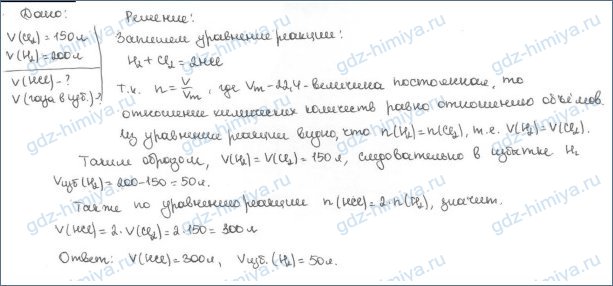 Дано:
V(Cl₂) = 150 л
V(H₂) = 200 л
V(HCl) - ?
V(газа в изб.) - ?
Решение:
Запишем уравнение реакции:
H₂ + Cl₂ = 2HCl
Т.к. n = V/Vm, где Vm - 22,4 - величина постоянная, то
отношение химических количеств равно отношению объёмов.
Из уравнения реакции видно, что n(H₂) = n(Cl₂), т.е. V(H₂) = V(Cl₂).
Таким образом, V(H₂) = V(Cl₂) = 150 л, следовательно в избытке H₂
Vизб(H₂) = 200 - 150 = 50 л.
Также по уравнению реакции n(HCl) = 2·n(Cl₂), значит
V(HCl) = 2·V(Cl₂) = 2·150 = 300 л
Ответ: V(HCl) = 300 л, Vизб.(H₂) = 50 л.
gdz-himiya.ru